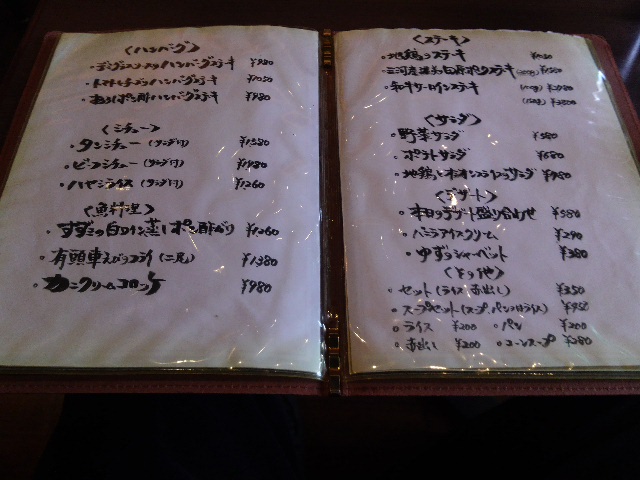 〈ハンバーグ〉
・デミグラスソースのハンバーグステーキ ¥980
・トマトとチーズのハンバーグステーキ ¥1050
・おろしポン酢ハンバーグステーキ ¥980
〈シチュー〉
・タンシチュー(サラダ付) ¥1580
・ビーフシチュー(サラダ付) ¥1480
・ハヤシライス(サラダ付) ¥1260
〈魚料理〉
・すずきの白ワイン蒸し ポン酢がけ ¥1260
・有頭車えびフライ(二尾) ¥1380
・カニクリームコロッケ ¥980
〈ステーキ〉
・地鶏のステーキ
・三河産 ポークステーキ
・和牛サーロインステーキ
〈サラダ〉
・野菜サラダ ¥580
・ポテトサラダ ¥680
・地鶏と オニオンスライスのサラダ ¥980
〈デザート〉
・本日のデザート盛り合わせ ¥580
・バニラアイスクリーム ¥290
・ゆずのシャーベット ¥380
〈その他〉
・セット(ライス 赤出し) ¥350
・スープセット(スープ、パン又はライス) ¥450
・ライス ¥200 ・パン ¥200
・赤出し ¥200 ・コーンスープ ¥280